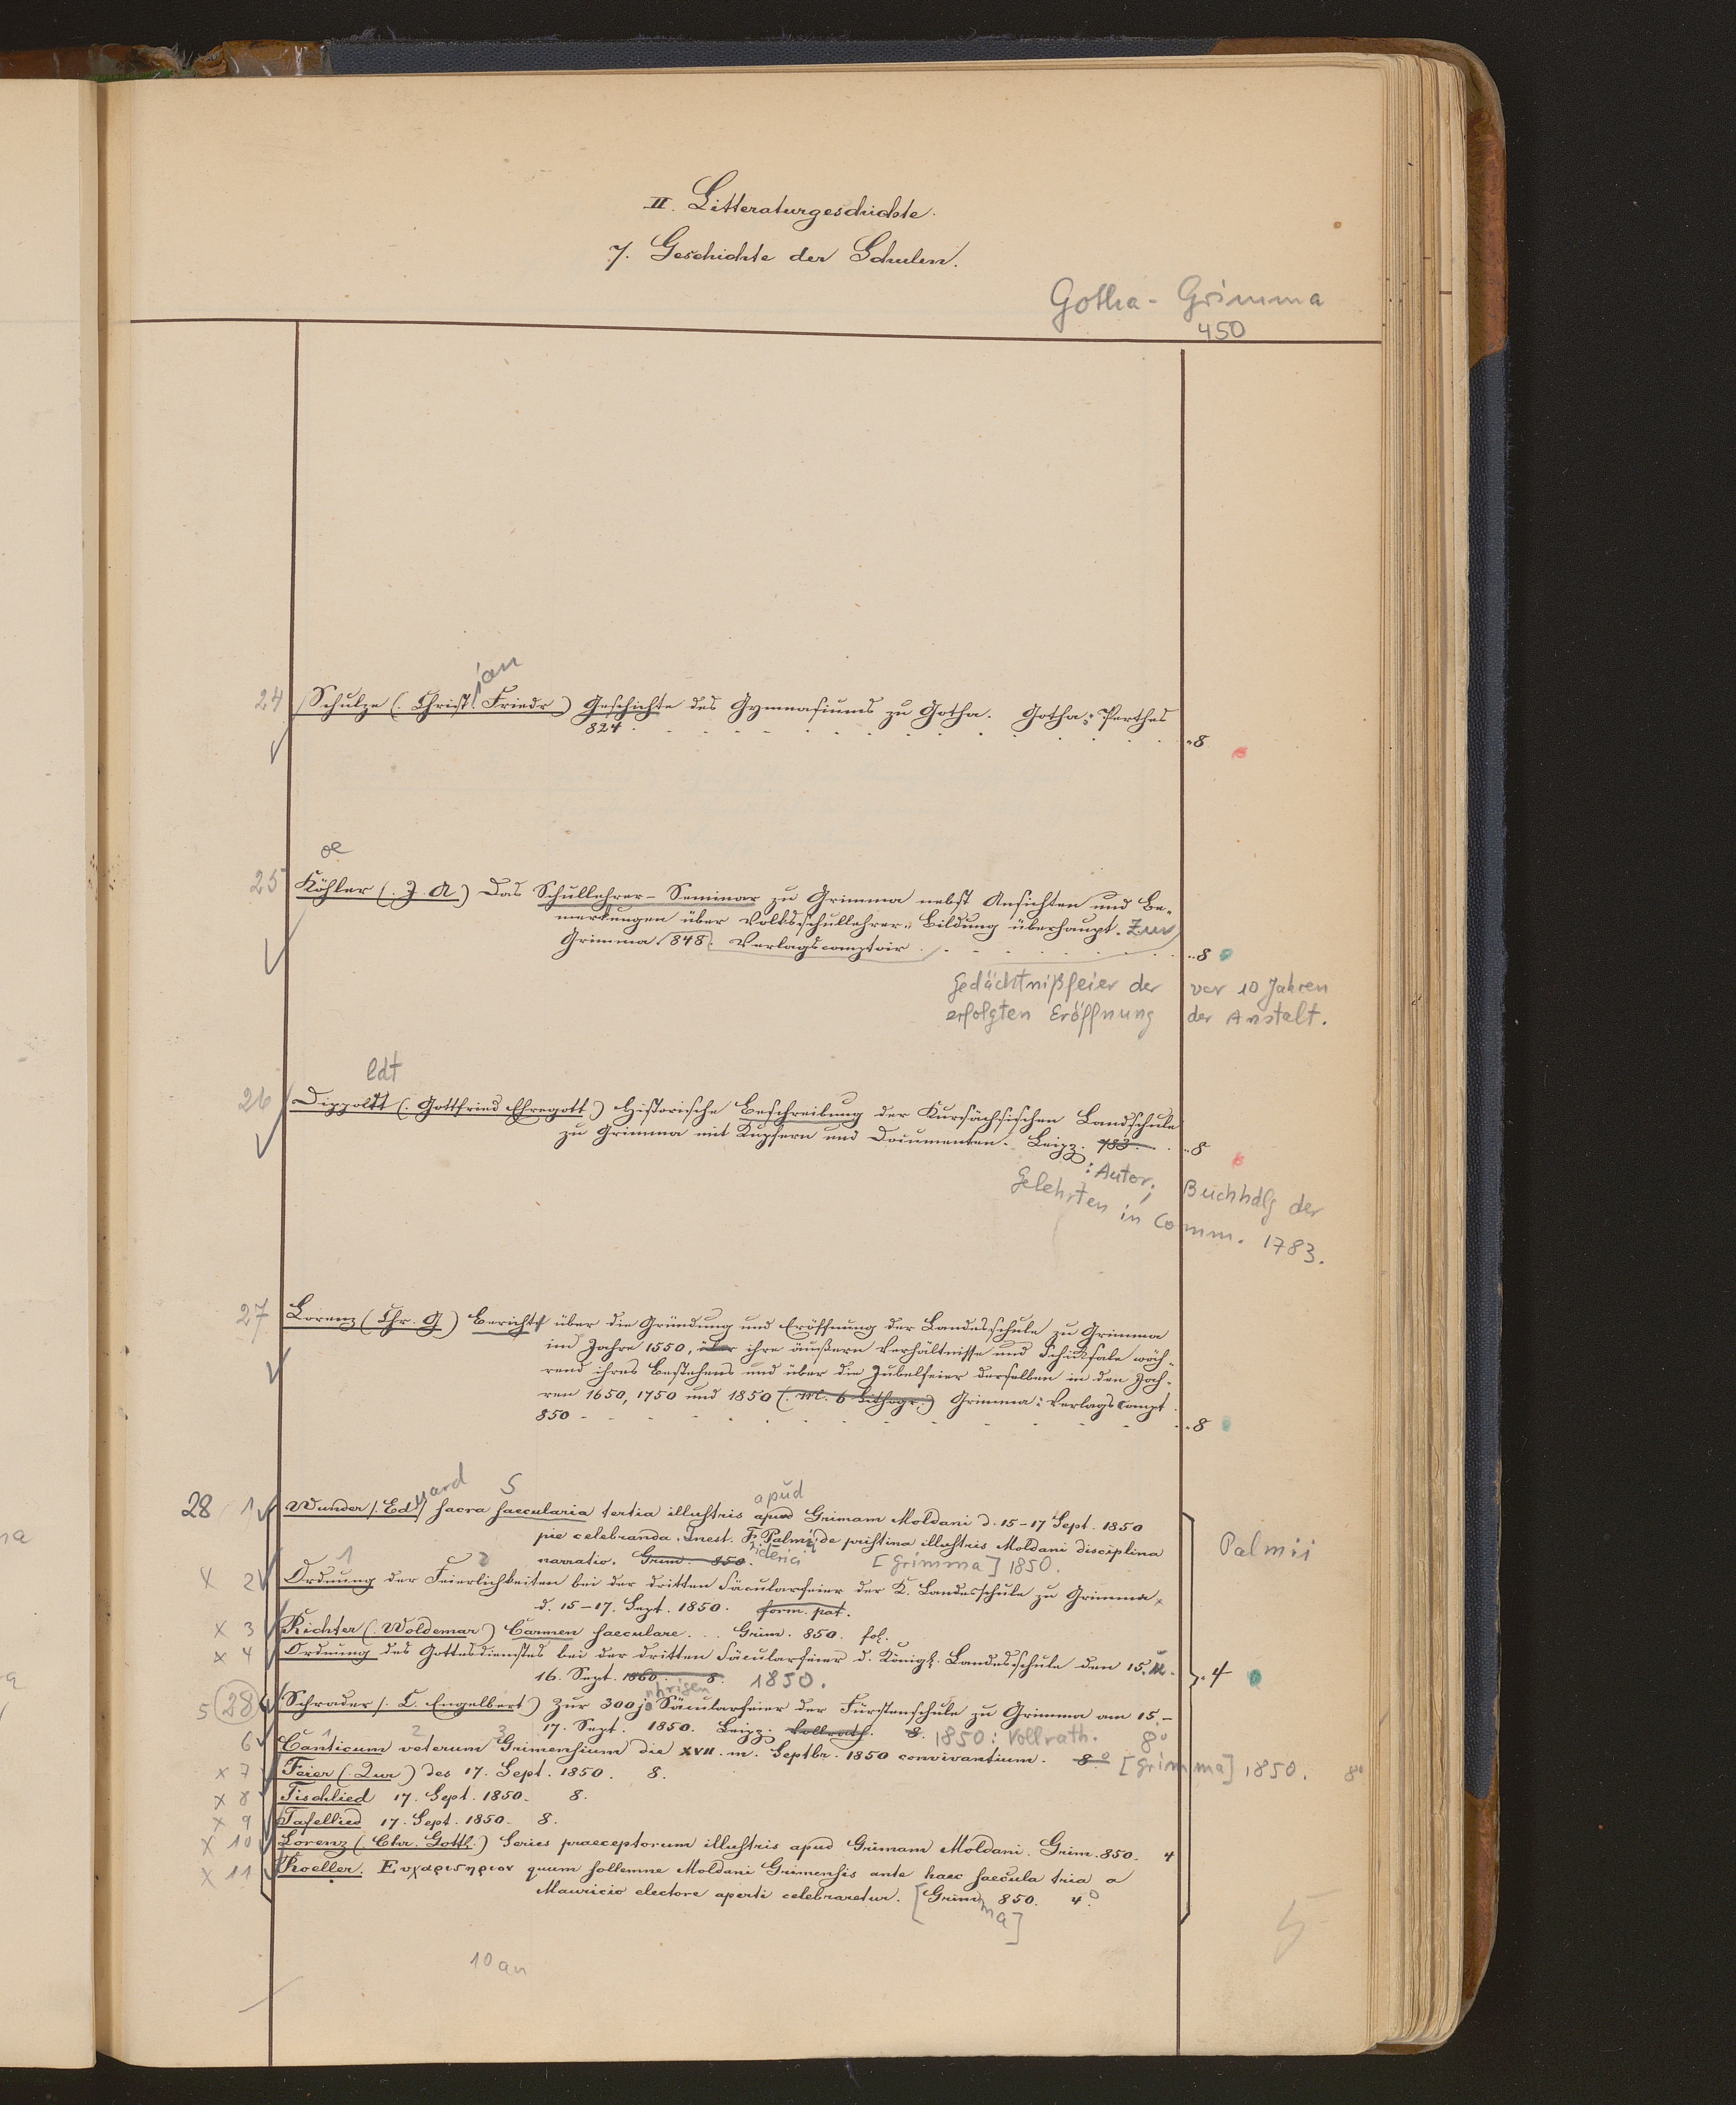 II. Litteraturgeschichte.
7. Geschichte der Schulen.
Gotha - Grimma
450
ian
24 Schulze (. Christ. Friedr.) Geschichte des Gymnasiums zu Gotha. Gotha: Perthes
824 . . . . 8
oe
25 Köhler (. J. A.) Das Schullehrer-Seminar zu Grimma nebst Ansichten und Be-
merkungen über Volksschullehrer-Bildung überhaupt. Zur
Grimma 848. Verlagscomptoir . . . 8
Gedächtnißfeier der vor 10 Jahren
erfolgten Eröffnung der Anstalt.
ldt
26 Dippoldt (. Gottfried Ehregott.) Historische Beschreibung der Kursächsischen Landschule
zu Grimma mit Kupfern und Documenten. Leipz. 783. . 8
: Autor; Buchhdlg der
Gelehrten in Comm. 1783.
27 Lorenz (Chr. G) Bericht über die Gründung und Eröffnung der Landesschule zu Grimma
im Jahre 1550, über ihre äußern Verhältnisse und Schicksale wäh-
rend ihres Bestehens und über die Jubelfeier derselben in den Jah-
ren 1650, 1750 und 1850 (. M. 6 Lithogr.) Grimma: Verlags Compt
850 - - - 8
uard S apud
28 1 Wunder (. Ed.) sacra saecularia tertia illustris apud Grimam Moldani d. 15-17 Sept. 1850
pie celebranda. Inest. F. Palmii de pristina illustris Moldani disciplina Palmii
narratio. Grim. 850. iderici [Grimma] 1850.
1 2
x 2 Ordnung der Feierlichkeiten bei der dritten Säcularfeier der K. Landesschule zu Grimma
d. 15-17. Sept. 1850. form. pat.
x 3 Richter (. Woldemar) Carmen saeculare. . . Grim. 850. fol.
x 4 Ordnung des Gottesdienstes bei der dritten Säcularfeier d. Königl. Landesschule den 15. u.
16. Sept. 1860. 8. 1850. 4
ährigen
5 28 Schrader (. C. Engelbert) Zur 300j. Säcularfeier der Fürstenschule zu Grimma am 15.-
17. Sept. 1850. Leipz. Vollrath. 8. 1850: Vollrath. 8°
1 2 3
6 Canticum veterum Grimensium die XVII. m. Septbr. 1850 convivantium. 8° [Grimma] 1850. 8°
x 7 Feier (. Zur) des 17. Sept. 1850. 8.
x 8 Tischlied 17. Sept. 1850. 8.
x 9 Tafellied 17. Sept. 1850. 8.
x 10 Lorenz (. Chr. Gottl.) Series praeceptorum illustris apud Grimam Moldani. Grim. 850. 4
x 11 Roeller. Ευχαριστηριον quum sollemne Moldani Grimensis ante haec saecula tria a
Mauricio electore aperti celebraretur. [Grim. 850. 4°
ma]
10 an